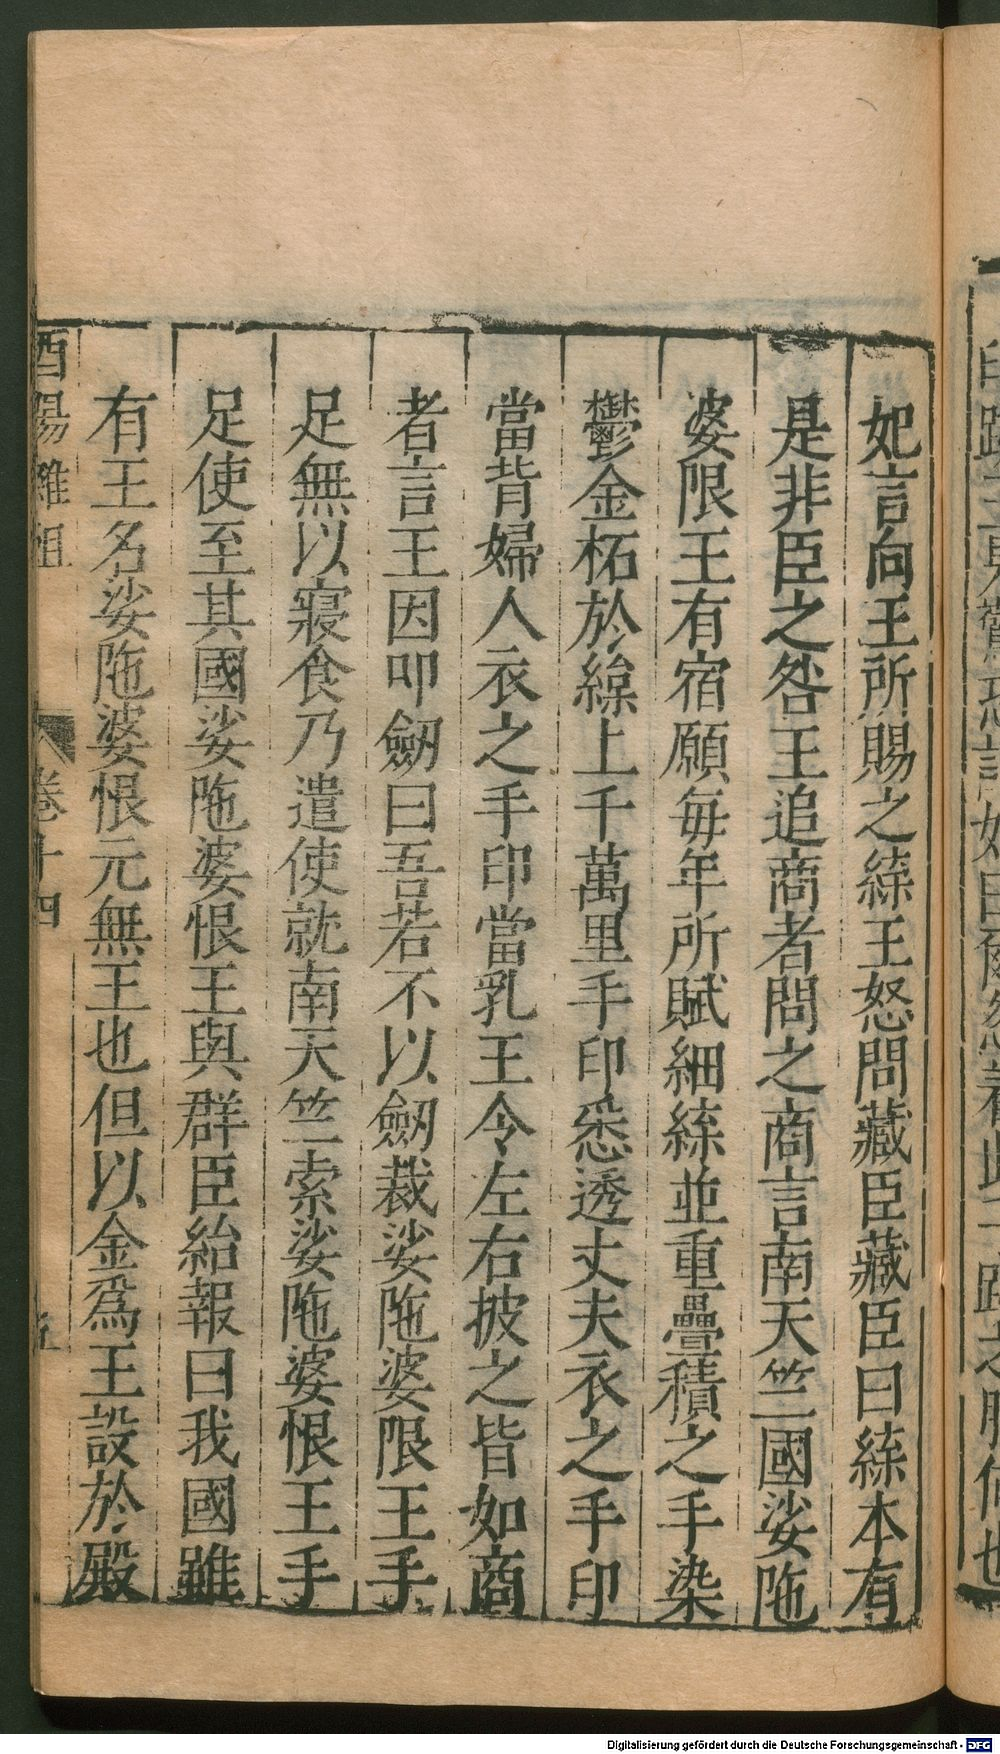 妃言向王所賜之緤王怒問藏臣藏臣曰緤本有
是非臣之咎王追商者問之商言南天竺國娑陁
婆限王有宿願每年所賦細緤並重疊積之手染
鬱金柘於緤上千萬里手印悉透丈夫衣之手印
當背婦人衣之手印當乳王令左右披之皆如商
者言王因叩劒曰吾若不以劒裁娑陁婆限王手
足無以寢食乃遣使就南天竺索娑陁婆恨王手
足使至其國娑陁婆恨王與群臣紿報曰我國雖
有王名娑陁婆恨元無王也但以金爲王設於殿
酉陽雜俎
卷十四
五
Digitalisierung gefördert durch die Deutsche Forschungsgemeinschaft - DFG